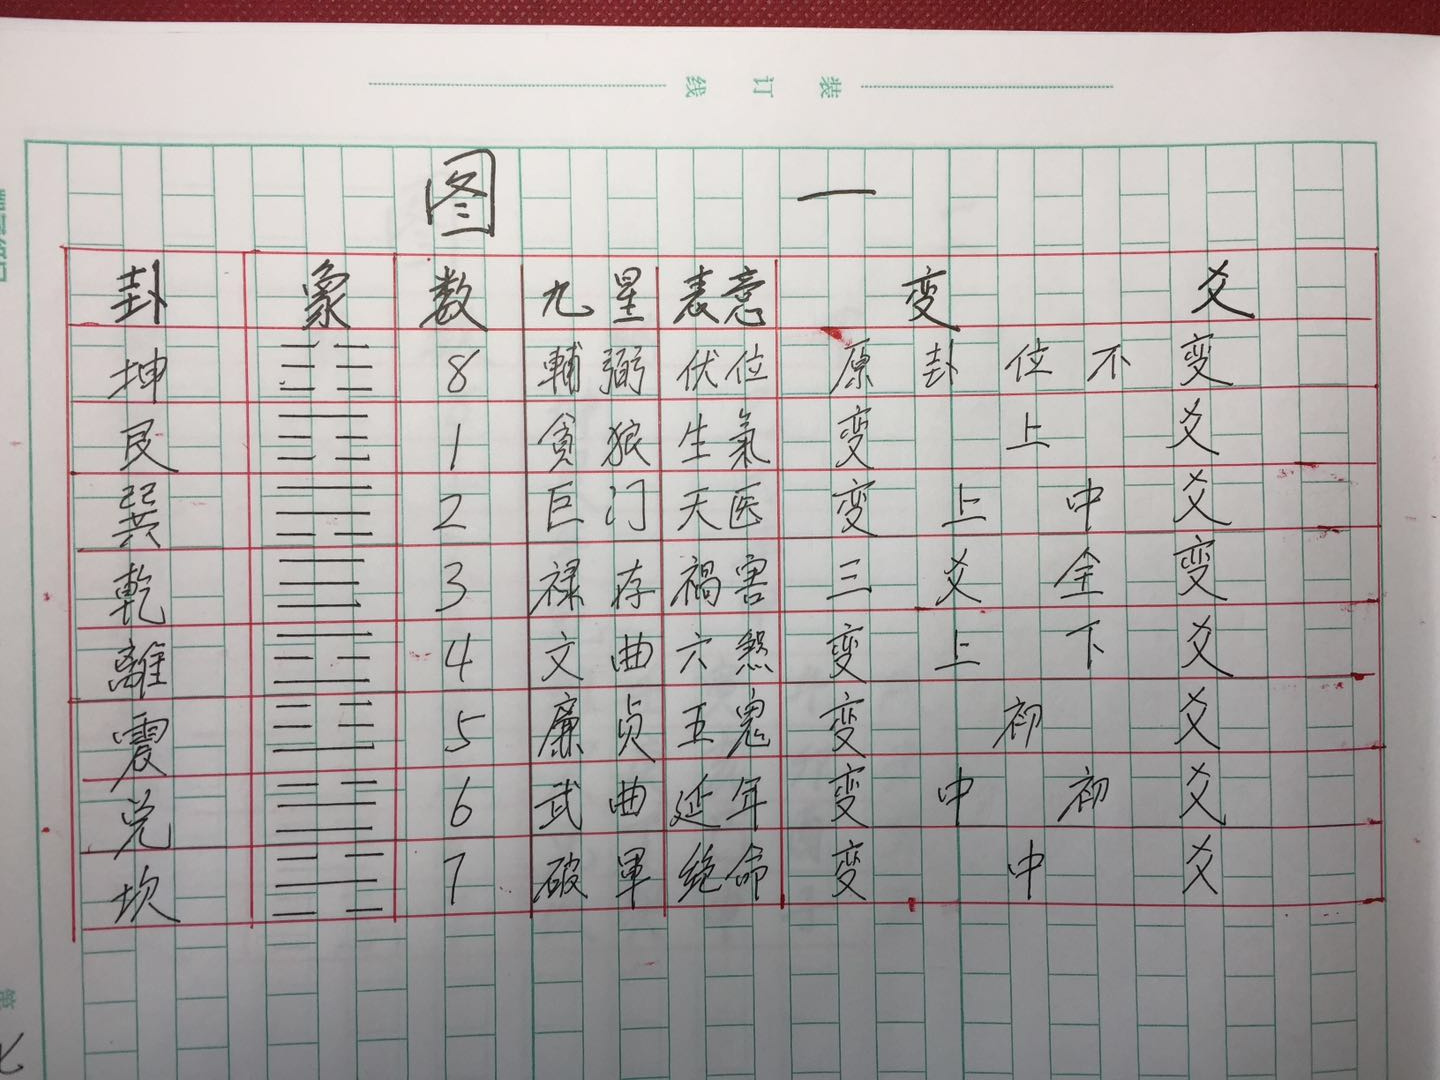 装 订 线
图 一
卦 象 数 九星 表意 变 爻
坤 ☷ 8 輔弼 伏位 原卦位不变
艮 ☶ 1 貪狼 生氣 变上爻
巽 ☴ 2 巨门 天医 变上中爻
乾 ☰ 3 禄存 禍害 三爻全变
離 ☲ 4 文曲 六煞 变上下爻
震 ☳ 5 廉贞 五鬼 变初爻
兑 ☱ 6 武曲 延年 变中初爻
坎 ☵ 7 破軍 绝命 变中爻